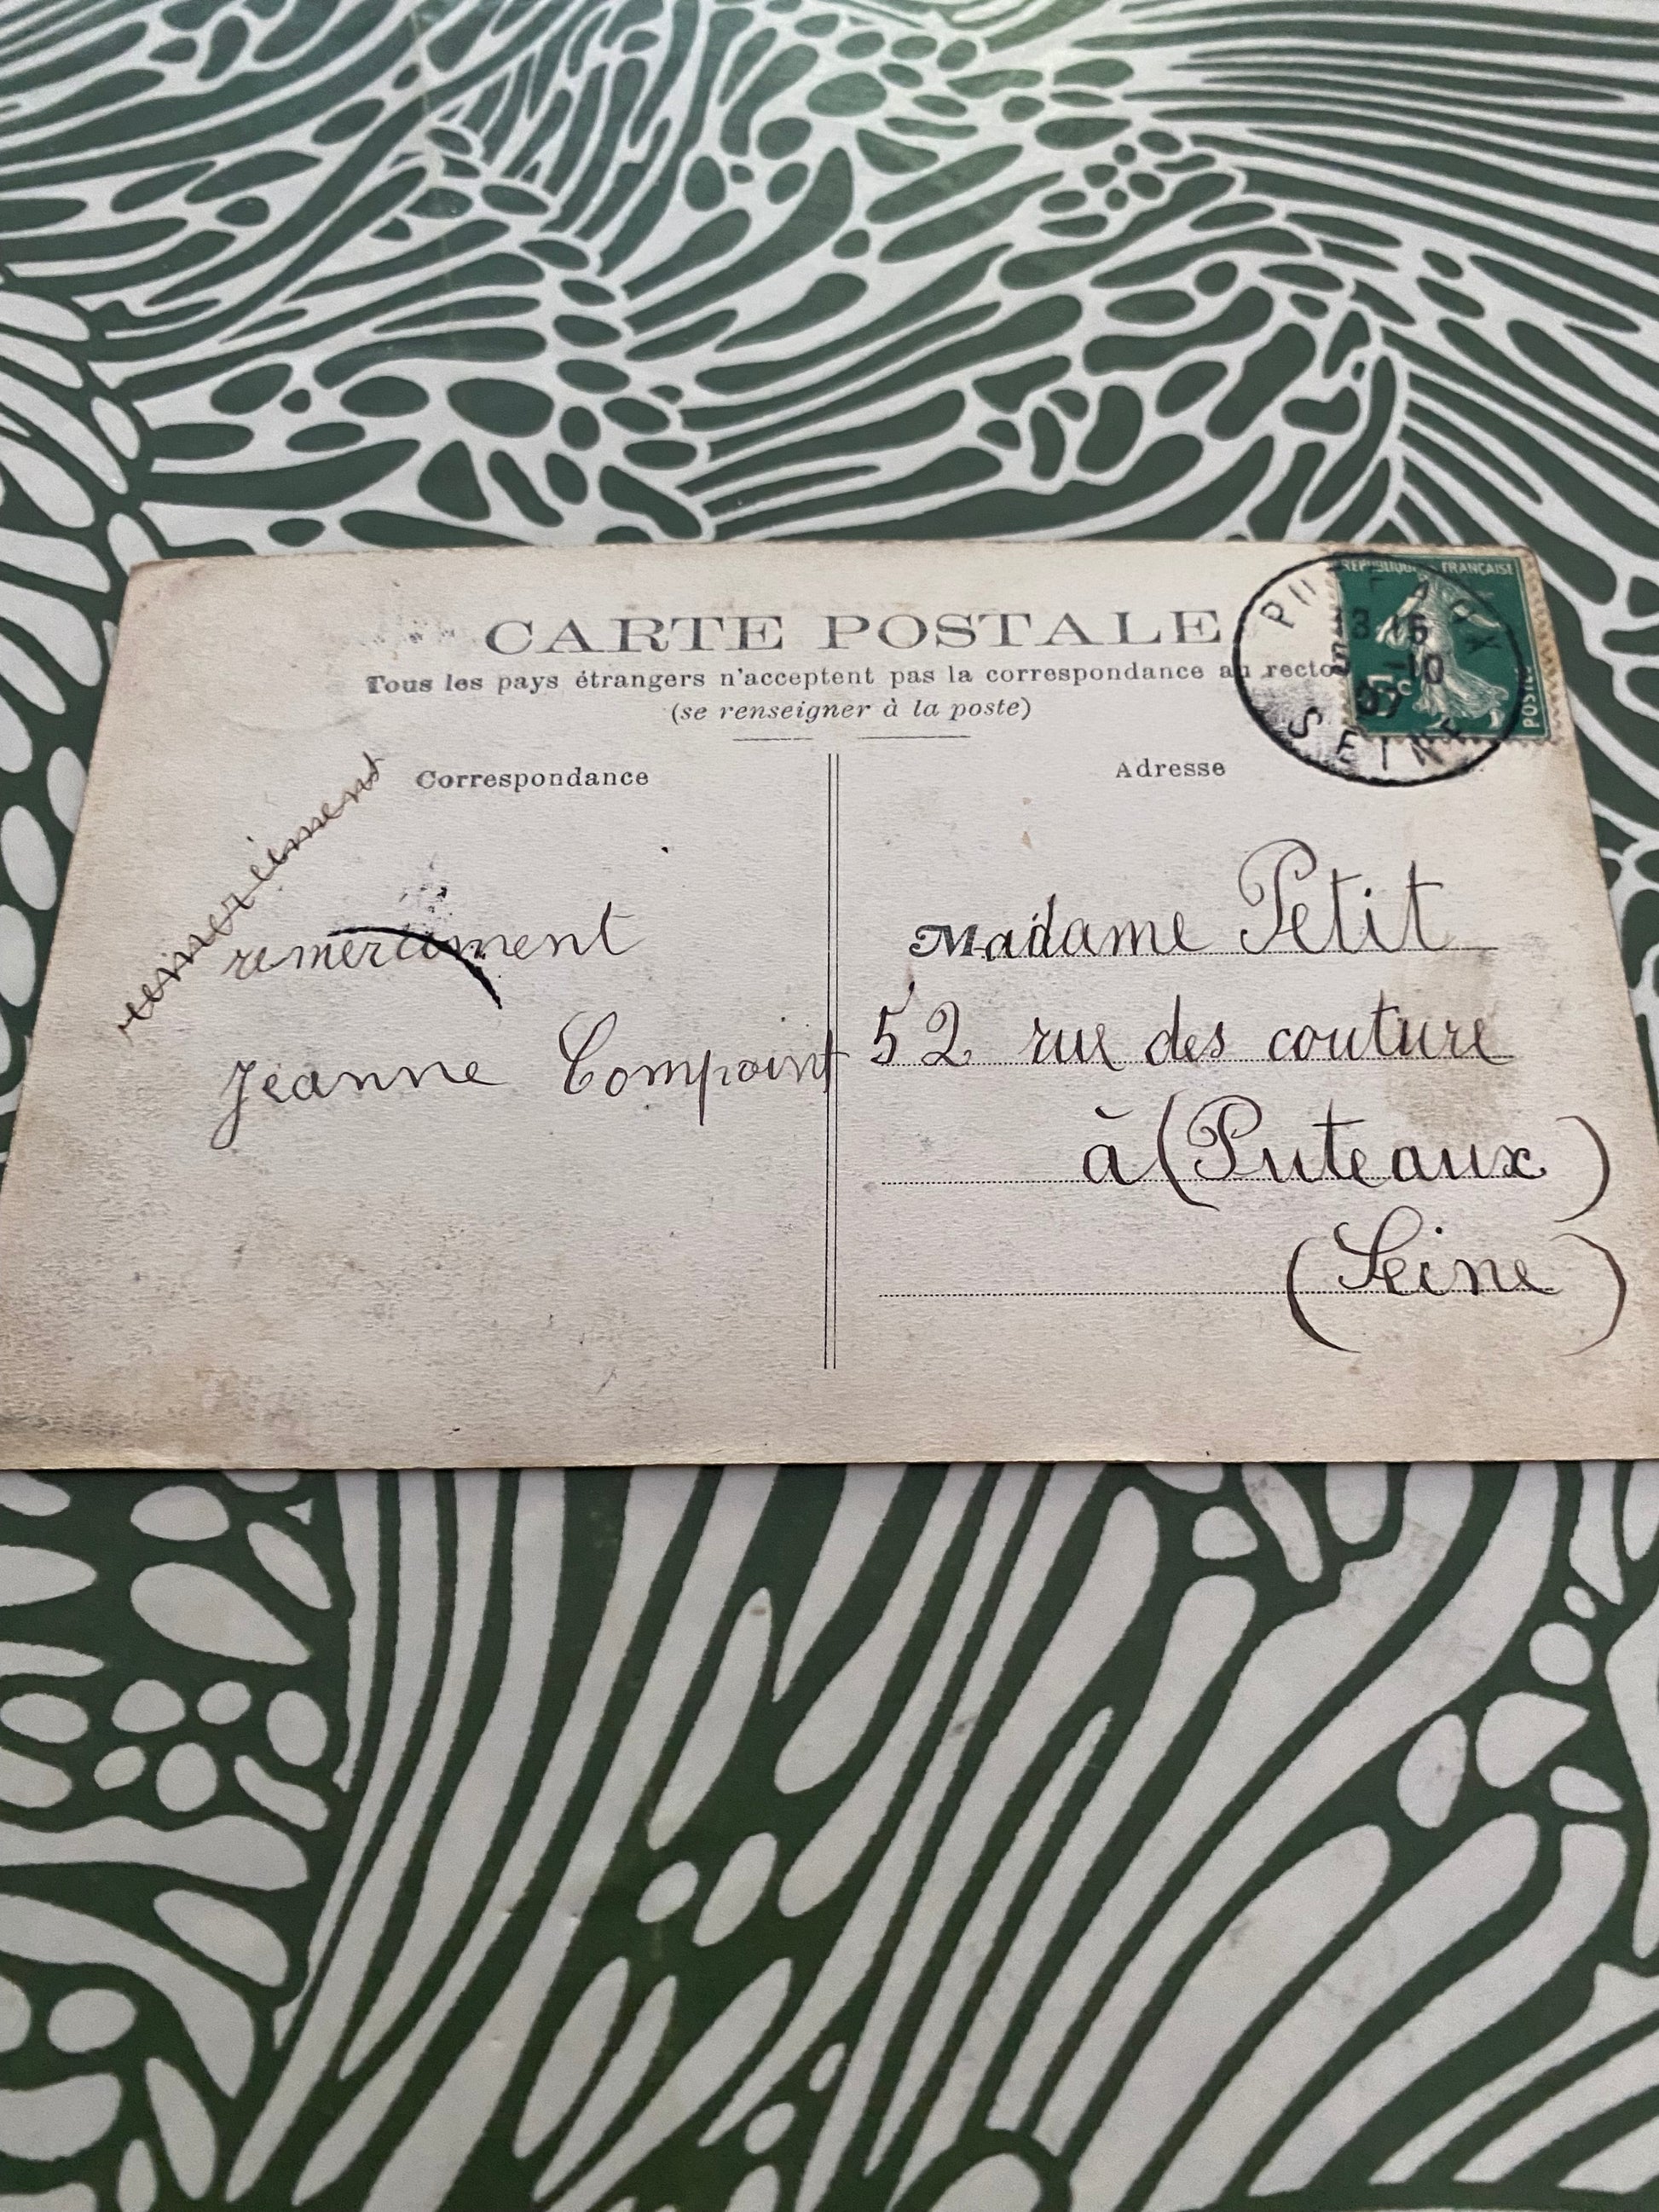 CARTE POSTALE
Tous les pays étrangers n'acceptent pas la correspondance au recto
(se renseigner à la poste)
RÉPUBLIQUE FRANÇAISE
POSTES
PUTEAUX
3 15
-10
07
SEINE
Correspondance
remerciement
remerciment
Jeanne Compoint
Adresse
Madame Petit
52 rue des couture
à (Puteaux)
(Seine)